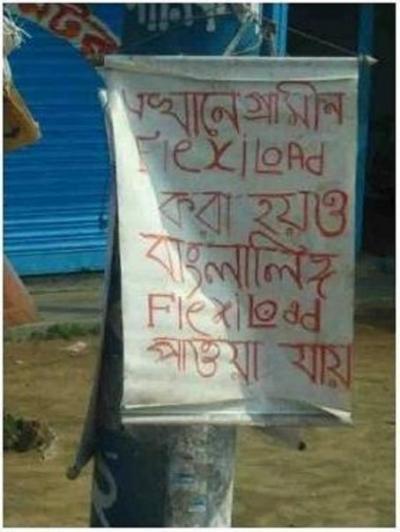 এখানে গ্রামীন
FlexiLoad
করা হয়ও
বাংলালিঙ্গ
FlexiLoad
পাওয়া যায়